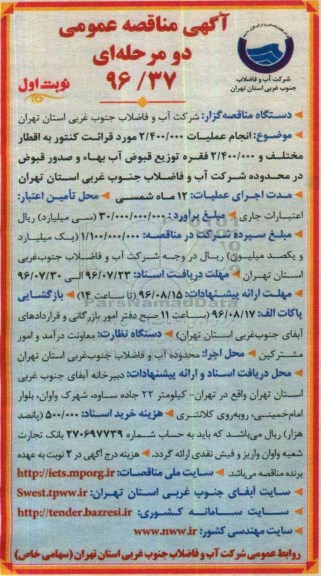 آگهی مناقصه عمومی
دو مرحله‌ای
۹۶/۳۷
نوبت اول
شرکت آب و فاضلاب
جنوب غربی استان تهران
دستگاه مناقصه‌گزار: شرکت آب و فاضلاب جنوب غربی استان تهران
موضوع: انجام عملیات ۲/۴۰۰/۰۰۰ مورد قرائت کنتور به اقطار
مختلف و ۲/۴۰۰/۰۰۰ فقره توزیع قبوض آب بهاء و صدور قبوض
در محدوده شرکت آب و فاضلاب جنوب غربی استان تهران
مدت اجرای عملیات: ۱۲ ماه شمسی محل تأمین اعتبار:
اعتبارات جاری مبلغ برآورد: ۳۰/۰۰۰/۰۰۰/۰۰۰ (سی میلیارد) ریال
مبلغ سپرده شرکت در مناقصه: ۱/۱۰۰/۰۰۰/۰۰۰ (یک میلیارد
و یکصد میلیون) ریال در وجه شرکت آب و فاضلاب جنوب‌غربی
استان تهران مهلت دریافت اسناد: ۹۶/۰۷/۲۳ الی ۹۶/۰۷/۳۰
مهلت ارائه پیشنهادات: ۹۶/۰۸/۱۵ (تا ساعت ۱۴) بازگشایی
پاکات الف: ۹۶/۰۸/۱۷ (ساعت ۱۱ صبح دفتر امور بازرگانی و قراردادهای
آبفای جنوب‌غربی استان تهران) دستگاه نظارت: معاونت درآمد و امور
مشترکین محل اجرا: محدوده آب و فاضلاب جنوب‌غربی استان تهران
محل دریافت اسناد و ارائه پیشنهادات: دبیرخانه آبفای جنوب غربی
استان تهران واقع در تهران- کیلومتر ۲۲ جاده ساوه، شهرک واوان، بلوار
امام‌خمینی، روبه‌روی کلانتری هزینه خرید اسناد: ۵۰۰/۰۰۰ (پانصد
هزار) ریال می‌باشد که باید به حساب شماره ۲۷۰۶۹۷۷۳۹ بانک تجارت
شعبه واوان واریز و فیش نقدی ارائه گردد. هزینه درج آگهی در ۲ نوبت به عهده
برنده مناقصه می‌باشد. سایت ملی مناقصات: http://iets.mporg.ir
سایت آبفای جنوب غربی استان تهران: Swest.tpww.ir
سایت سامانه کشوری: http://tender.bazresi.ir
سایت مهندسی کشور: www.nww.ir
روابط عمومی شرکت آب و فاضلاب جنوب غربی استان تهران (سهامی خاص)